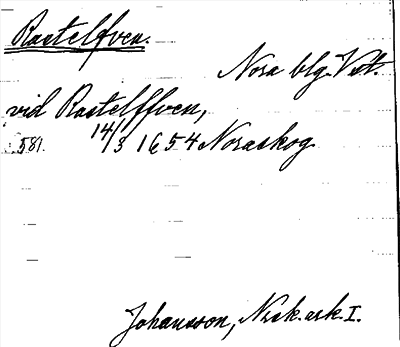 Rastelfven.
Nora blg. Vstl.
vid Rastelffven,
.581. 14/3 1654 Noraskog
Johansson, Nsk. ark. I.